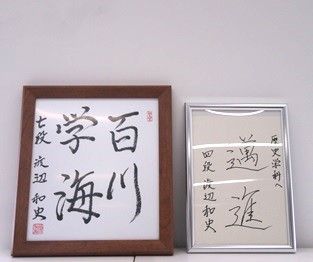 百川
学海
七段 渡辺 和史
歴史学科へ
邁進
四段 渡辺 和史